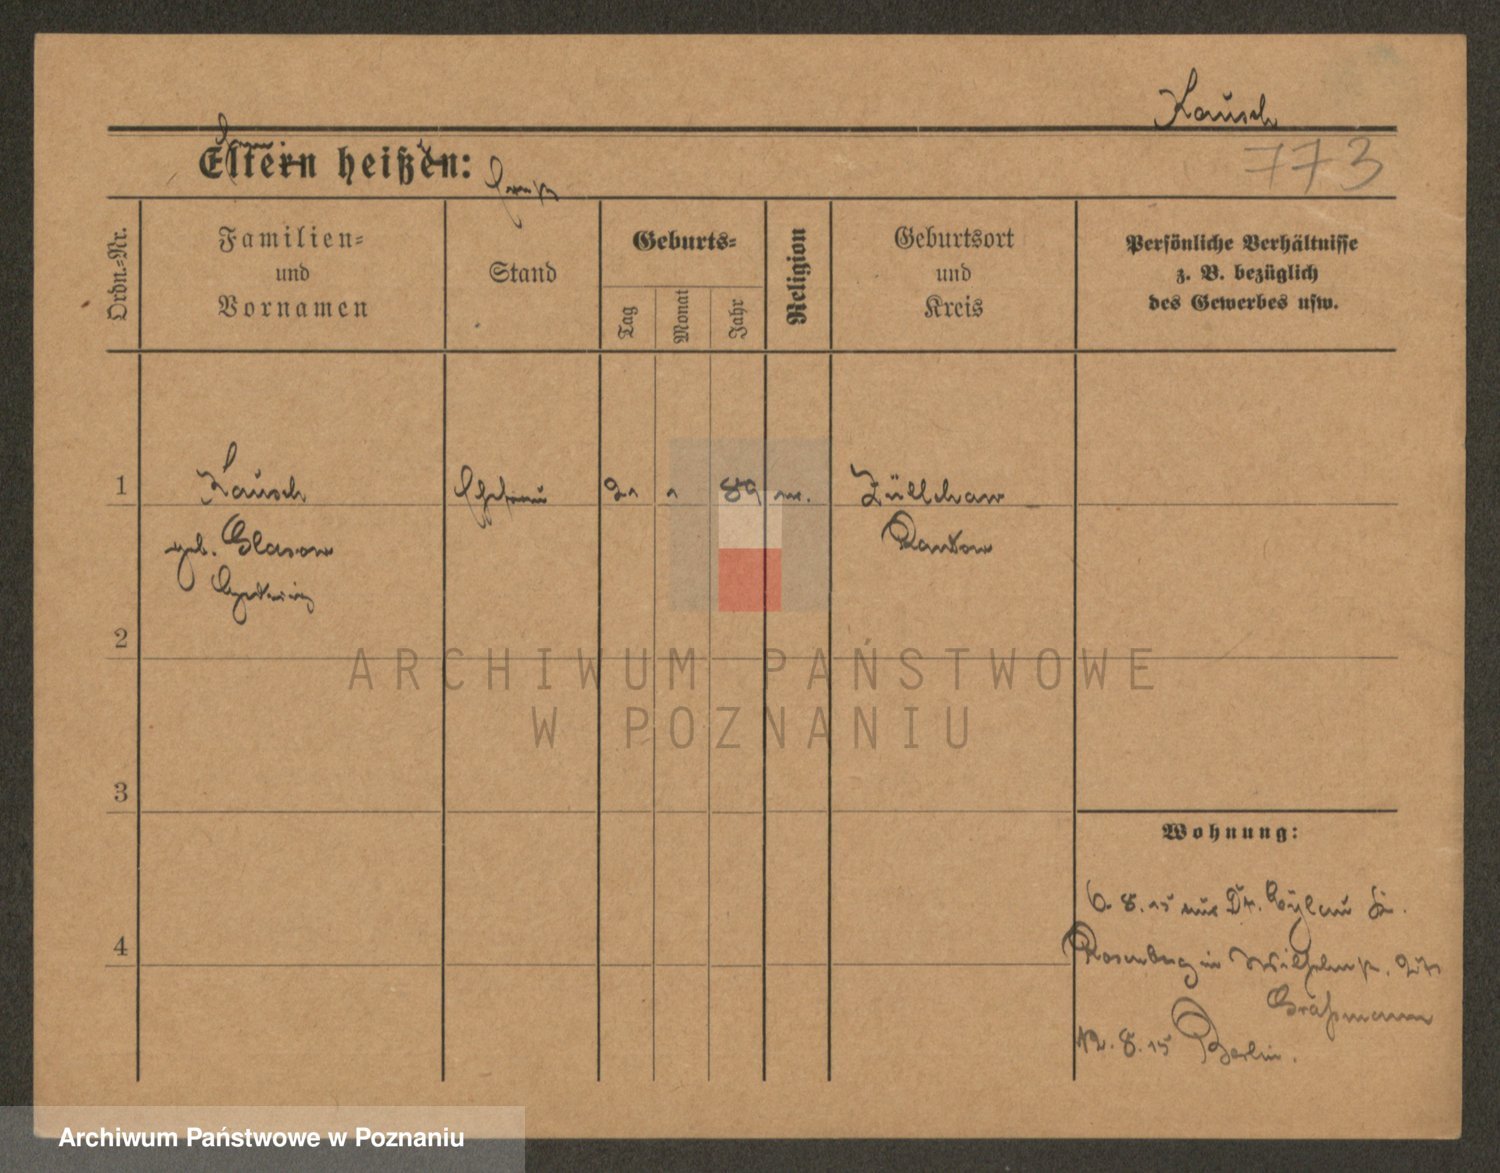 Kausch
773
Eltern heißen:
Ordn.-Nr.
Familien-
und
Vornamen
Stand
Geburts-
Tag
Monat
Jahr
Religion
Geburtsort
und
Kreis
Persönliche Verhältnisse
z. B. bezüglich
des Gewerbes usw.
1
Kausch
Ehefrau
21 1 89
Züllchow
geb. Glasow
Randow
Hedwig
2
ARCHIWUM PAŃSTWOWE
W POZNANIU
3
Wohnung:
6. 8. 15 aus Dt. Eylau Kr.
4
Rosenberg in Wilhelmstr.
Gräßmann
12. 8. 15 Berlin.
Archiwum Państwowe w Poznaniu